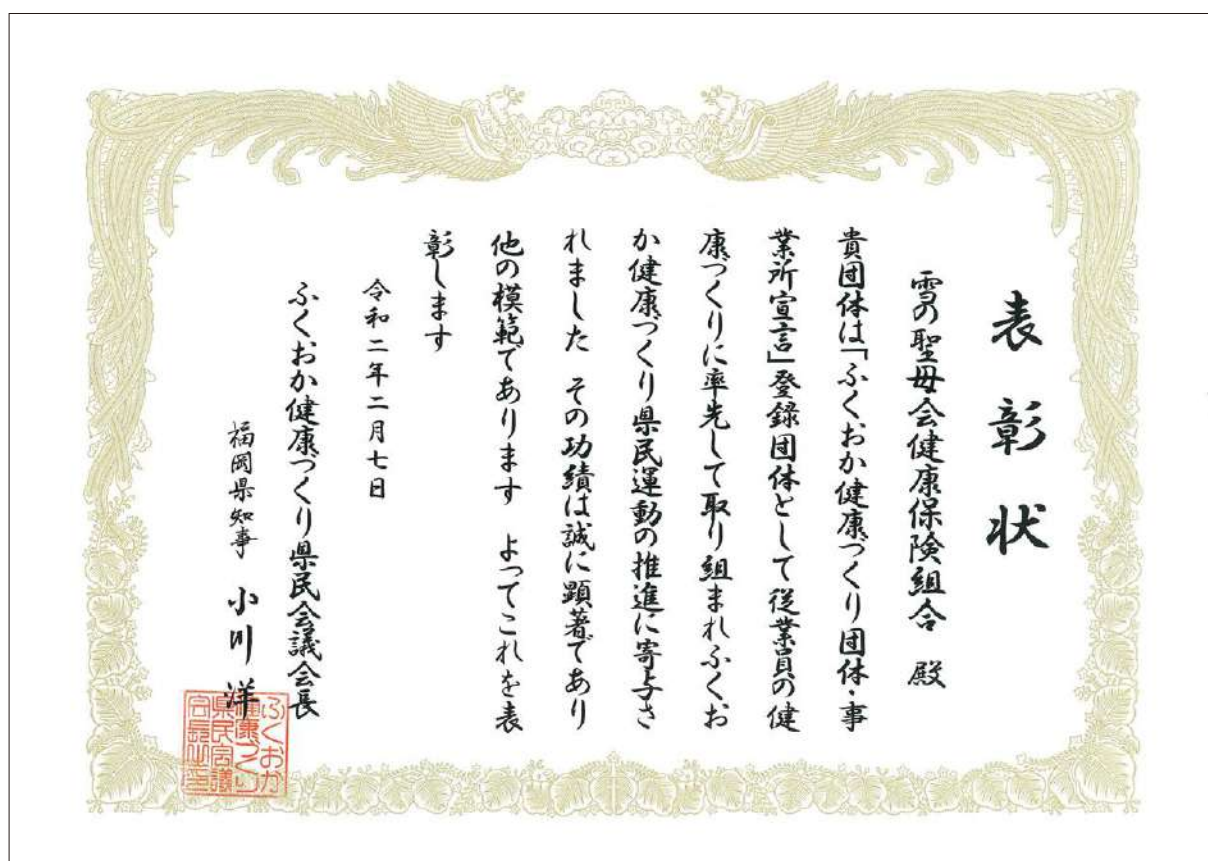 表彰状
雪の聖母会健康保険組合 殿
貴団体は「ふくおか健康づくり団体・事
業所宣言」登録団体として従業員の健
康づくりに率先して取り組まれふくお
か健康づくり県民運動の推進に寄与さ
れました その功績は誠に顕著であり
他の模範であります よってこれを表
彰します
令和二年二月七日
ふくおか健康づくり県民会議会長
福岡県知事 小川洋
ふくおか
健康づくり
県民会議
会長之印